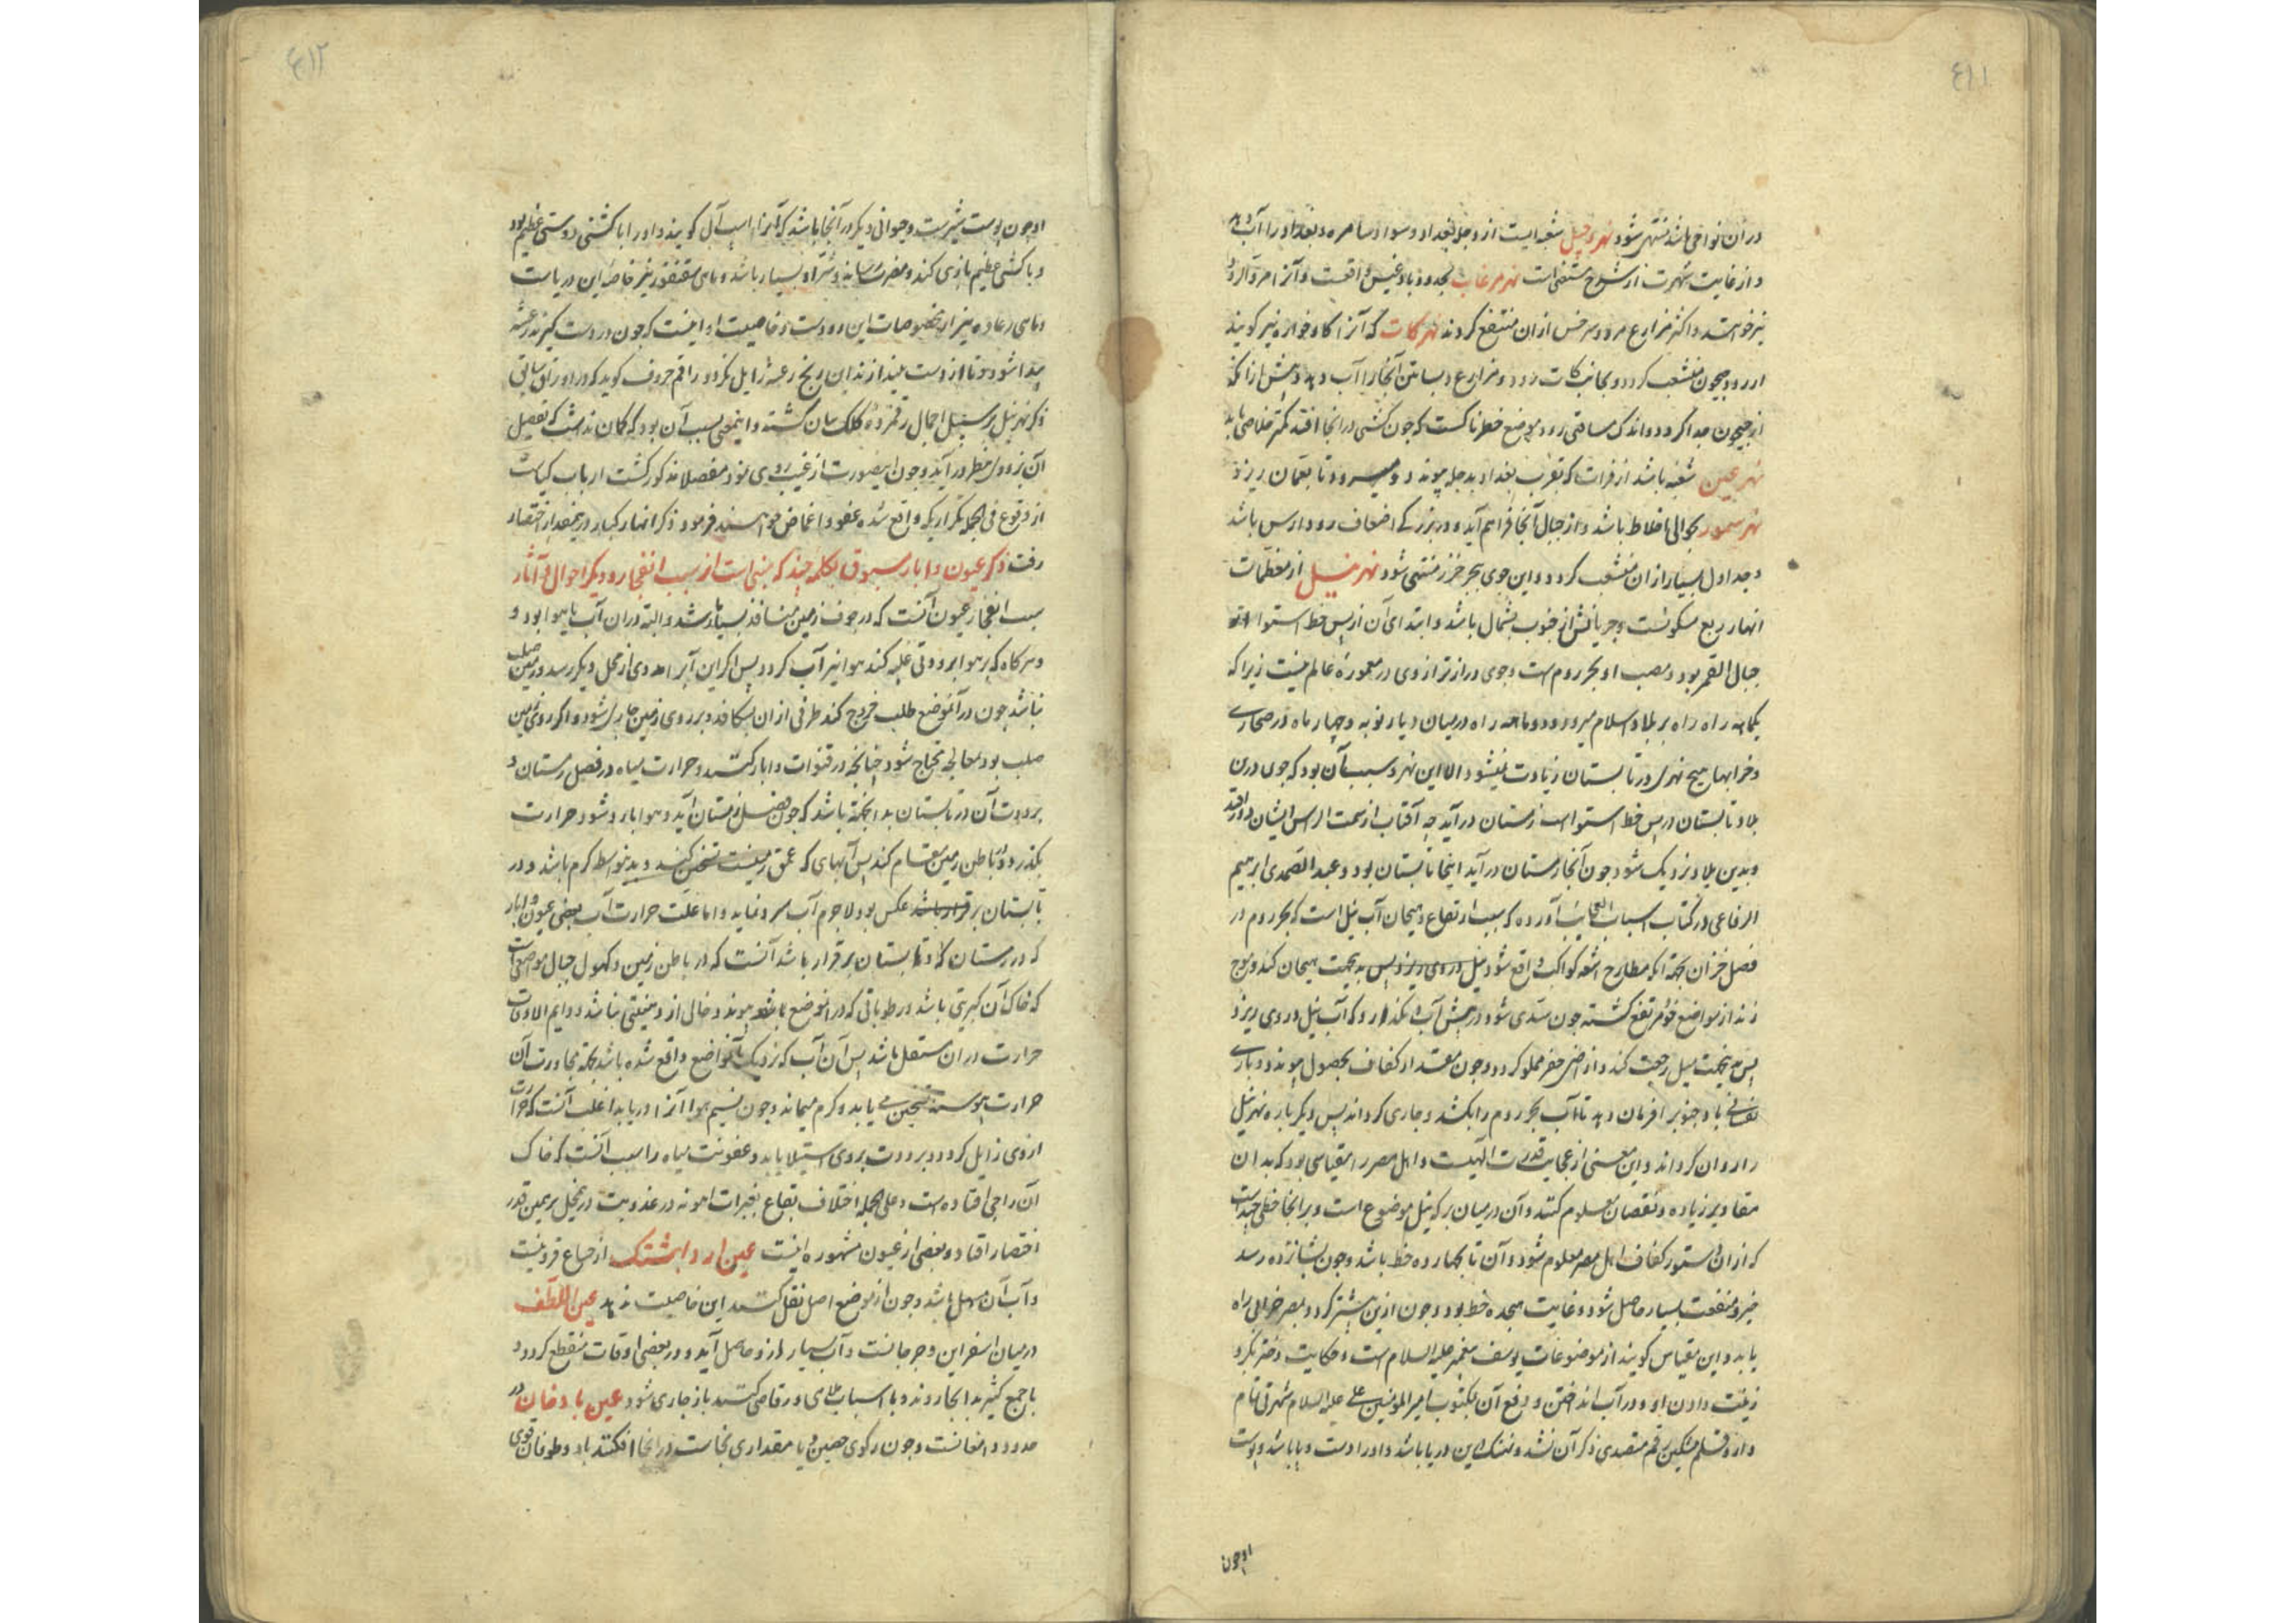 ٤١١
در آن نواحی باشد منتهی شود نهر دجیل شعبه ایست از دجله بغداد و سواد سامره و بغداد را آب دهد
و از غایت شهرت از شرح مستغنی است نهر مرغاب بحدود بادغیس واقعست و آنرا مروالرود
نیز خوانند و اکثر مزارع مرو و سرخس از آن منتفع کردند نهر کات که آنرا کاوخواره نیز کویند
از رود جیحون منشعب کردد و بجانب کات رود و مزارع و بساتین آنجا را آب دهد و پیش از آنکه
از جیحون جدا کردد و اندک مسافتی رود موضع خطرناکست که چون کشتی در آنجا افتد کمتر خلاصی یابد
نهر عیسی شعبه باشد از فرات که بقرب بغداد بدجله پیوندد و میرود تا بعمان ریزد
نهر سمور بحوالی اخلاط باشد و از جبال آنجا فراهم آید و در بزرکی اضعاف رود ارس باشد
و جداول بسیار از آن منشعب کردد و این جوی ببحر خزر منتهی شود نهر نیل از معظمات
انهار ربع مسکونست و جریانش از جنوب بشمال باشد و ابتدای آن از پس خط استوا از
جبال القمر بود و مصب او بحر روم است و جوی درازتر از وی در معموره عالم نیست زیرا که
یکماهه راه بر بلاد اسلام میرود و دو ماهه راه در میان دیار نوبه و چهار ماه در صحاری
و خرابها و هیچ نهری در تابستان زیادت نمیشود الا این نهر و سبب آن بود که چون درین
بلاد تابستان در پس خط استوا است زمستان درآید چه آفتاب از سمت الراس ایشان دور افتد
و بدین بلاد نزدیک شود چون آنجا زمستان درآید اینجا تابستان بود و عبد الصمد ابرهیم
الرفاعی در کتاب اسباب العجایب آورده که سبب ارتفاع و هیجان آب نیل است که بحر روم در
فصل خزان بجهة آنکه مطارح اشعه کواکب واقع شود نیل در وی ریزد پس بدین جهت هیجان کند و موج
زند از مواضع خود مرتفع کشته چون سدی شود در پیش آب و نکذارد که آب نیل در وی ریزد
پس بدین جهت نیل رجعت کند و ارض مصر مملو کردد و چون مقدار کفاف بحصول پیوندد باری
تعالی باد جنوب را فرمان دهد تا آب بحر روم را بکشد و جاری کرداند پس دیکر باره نهر نیل
را روان کرداند و این معنی از عجایب قدرت الهیست و اهل مصر را مقیاسی بود که بدان
مقادیر زیاده و نقصان معلوم کنند و آن در میان برکه نیل موضوع است و بر آنجا خطی چند است
که از آن دستور کفاف اهل مصر معلوم شود و آن تا بچهارده خط باشد و چون بشانزده رسد
خیر و منفعت بسیار حاصل شود و غایت هجده خط بود و چون ازین بیشتر کردد بمصر خرابی راه
یابد و این مقیاس کویند از موضوعات یوسف پیغمبر علیه السلام است و حکایت دختر بکر و
زینت دادن او و در آب انداختن و رفع آن بمکتوب امیر المومنین علی علیه السلام شهرتی تمام
دارد قلم مشکین رقم متصدی ذکر آن نشد و نهنک این دریا باشد و او را دست و پا باشد و پوست
او چون
٤١٢
او چون پوست شیرست و حیوانی دیکر در آنجا باشد که آنرا اسب آبی کویند و او را با کشتی دوستی عظیم بود
و با کشتی عظیم بازی کند و مضرت نرساند و شر او بسیار باشد و ماهی سقنقور نیز خاصه این دریاست
و ماهی رعاده نیز از مخصوصات این رودست و خاصیت او اینست که چون در دست کیرند رعشه
پیدا شود و تا از دست نیندازند آن رنج رعشه زایل نکردد راقم حروف کوید که در اوراق سابق
ذکر نهر نیل بر سبیل اجمال رقمزده کلک بیان کشته و اینمعنی بسبب آن بود که کمان نداشت که تفصیل
آن بزودی بنظر درآید و چون اینصورت از غیب روی نمود مفصلا مذکور کشت ارباب کیاست
از وقوع فی الجمله تکراریکه واقع شده عفو و اغماض خواهند فرمود ذکر انهار کبار درینمقدار اختصار
رفت ذکر عیون و ابار مسبوق بکلمه چند که مبنی است از سبب انفجار و دیکر احوال و آثار
سبب انفجار عیون آنست که در جوف زمین منافذ بسیار باشد و البته در آن آب یا هوا بود و
و هرکاه که بر هوا برودتی غلبه کند هوا نیز آب کردد پس اکر این آبرا مددی از محل دیکر رسد و زمین صلب
نباشد چون در آنموضع طلب خروج کند طرفی از آن بشکافد و بر روی زمین جاری شود و اکر روی زمین
صلب بود بمعالجه محتاج شود چنانکه در قنوات و ابار کنند و حرارت میاه در فصل زمستان و
برودت آن در تابستان بدانجهة باشد که چون فصل زمستان آید و هوا بارد شود حرارت
بکذرد و در باطن زمین مقام کند پس آبهای که عمق زمینست تسخین کند و بدین واسطه کرم باشد و در
تابستان برقرار باشد عکس بود لاجرم آب سرد نماید و اما علت حرارت آب بعضی عیون و ابار
که در زمستان و تابستان برقرار باشد آنست که در باطن زمین و کهول جبال مواضعی است
که خاک آن کبریتی باشد و رطوباتی که در آنموضع باشد پیوند و خالی از دهنیتی نباشد و دایم الاوقات
حرارت در آن مستقل باشد پس آن آب که نزدیک بآنمواضع واقع شده باشد بجهة مجاورت آن
حرارت پیوسته تسخین می یابد و کرم میماند و چون نسیم هوا آنرا دریابد اغلب آنست که حرارت
از وی زایل کردد و برودت بر وی استیلا یابد و عفونت میاه را سبب آنست که خاک
آن اجاج افتاده است و علی الجمله اختلاف بقاع بتغیرات اهویه در عذوبت در محل برهمین قدر
اختصار افتاد و بعضی از عیون مشهوره اینست عین اردابشتک از ضیاع قزوینست
و آب آن مسهل باشد و چون از موضع اصل نقل کنند این خاصیت ندهد عین اللطف
در میان اسفراین و جرجانست و آب بسیار از و حاصل آید و در بعضی اوقات منقطع کردد و
با جمع کثیر بدانجا روند و با اسباب ملاهی و رقاصی کنند باز جاری شود عین بادخان در
حدود دامغانست و چون رکوی حیض و یا مقداری نجاست در آنجا افکنند باد و طوفان قوی